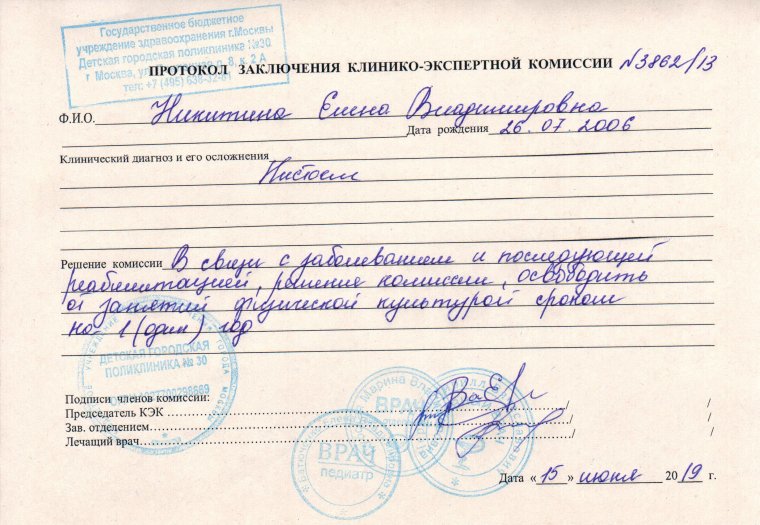 Государственное бюджетное
учреждение здравоохранения г.Москвы
Детская городская поликлиника №30
г Москва, ул. д. 8, к. 2 А
тел: +7 (495) 638-32-01
ПРОТОКОЛ ЗАКЛЮЧЕНИЯ КЛИНИКО-ЭКСПЕРТНОЙ КОМИССИИ №3862/13
Ф.И.О. Никитина Елена Владимировна
Дата рождения 26.07.2006
Клинический диагноз и его осложнения
Решение комиссии В связи с заболеванием и последующей
реабилитацией, решение комиссии, освободить
от занятий физической культурой сроком
на 1 (один) год
ДЕТСКАЯ ГОРОДСКАЯ
ПОЛИКЛИНИКА № 30
Подписи членов комиссии:
Председатель КЭК
Зав. отделением
Лечащий врач
ВРАЧ
ВРАЧ
педиатр
Дата «15» июня 2019 г.